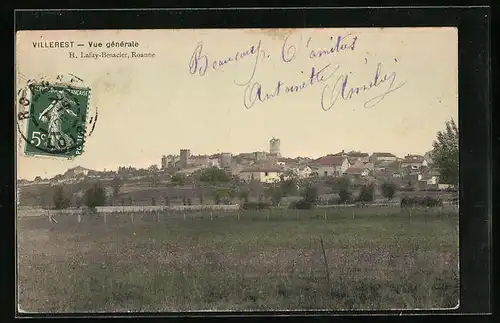 VILLEREST — Vue générale
H. Lafay-Besacier, Roanne
Beaucoup d'amitiés
Antoinette
5c
POSTES